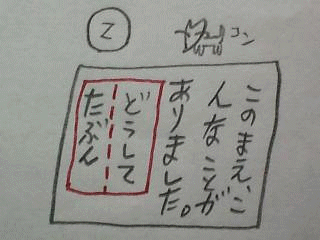 ②
コン
このまえ、こ
んなことが
ありました。
どうして
たぶん